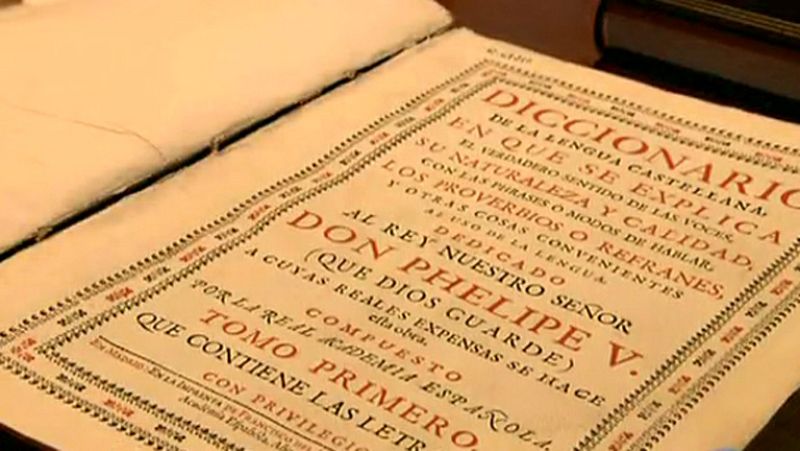 DICCIONARIO
DE LA LENGUA CASTELLANA,
EN QUE SE EXPLICA
EL VERDADERO SENTIDO DE LAS VOCES,
SU NATURALEZA Y CALIDAD,
CON LAS PHRASES O MODOS DE HABLAR,
LOS PROVERBIOS O REFRANES,
Y OTRAS COSAS CONVENIENTES
AL USO DE LA LENGUA.
DEDICADO
AL REY NUESTRO SEÑOR
DON PHELIPE V.
(QUE DIOS GUARDE)
A CUYAS REALES EXPENSAS SE HACE
esta obra.
COMPUESTO
POR LA REAL ACADEMIA ESPAÑOLA.
TOMO PRIMERO.
QUE CONTIENE LAS LETR
CON PRIVILEGIO
EN MADRID. EN LA IMPRENTA DE FRANCISCO DEL
Academia Española. Año